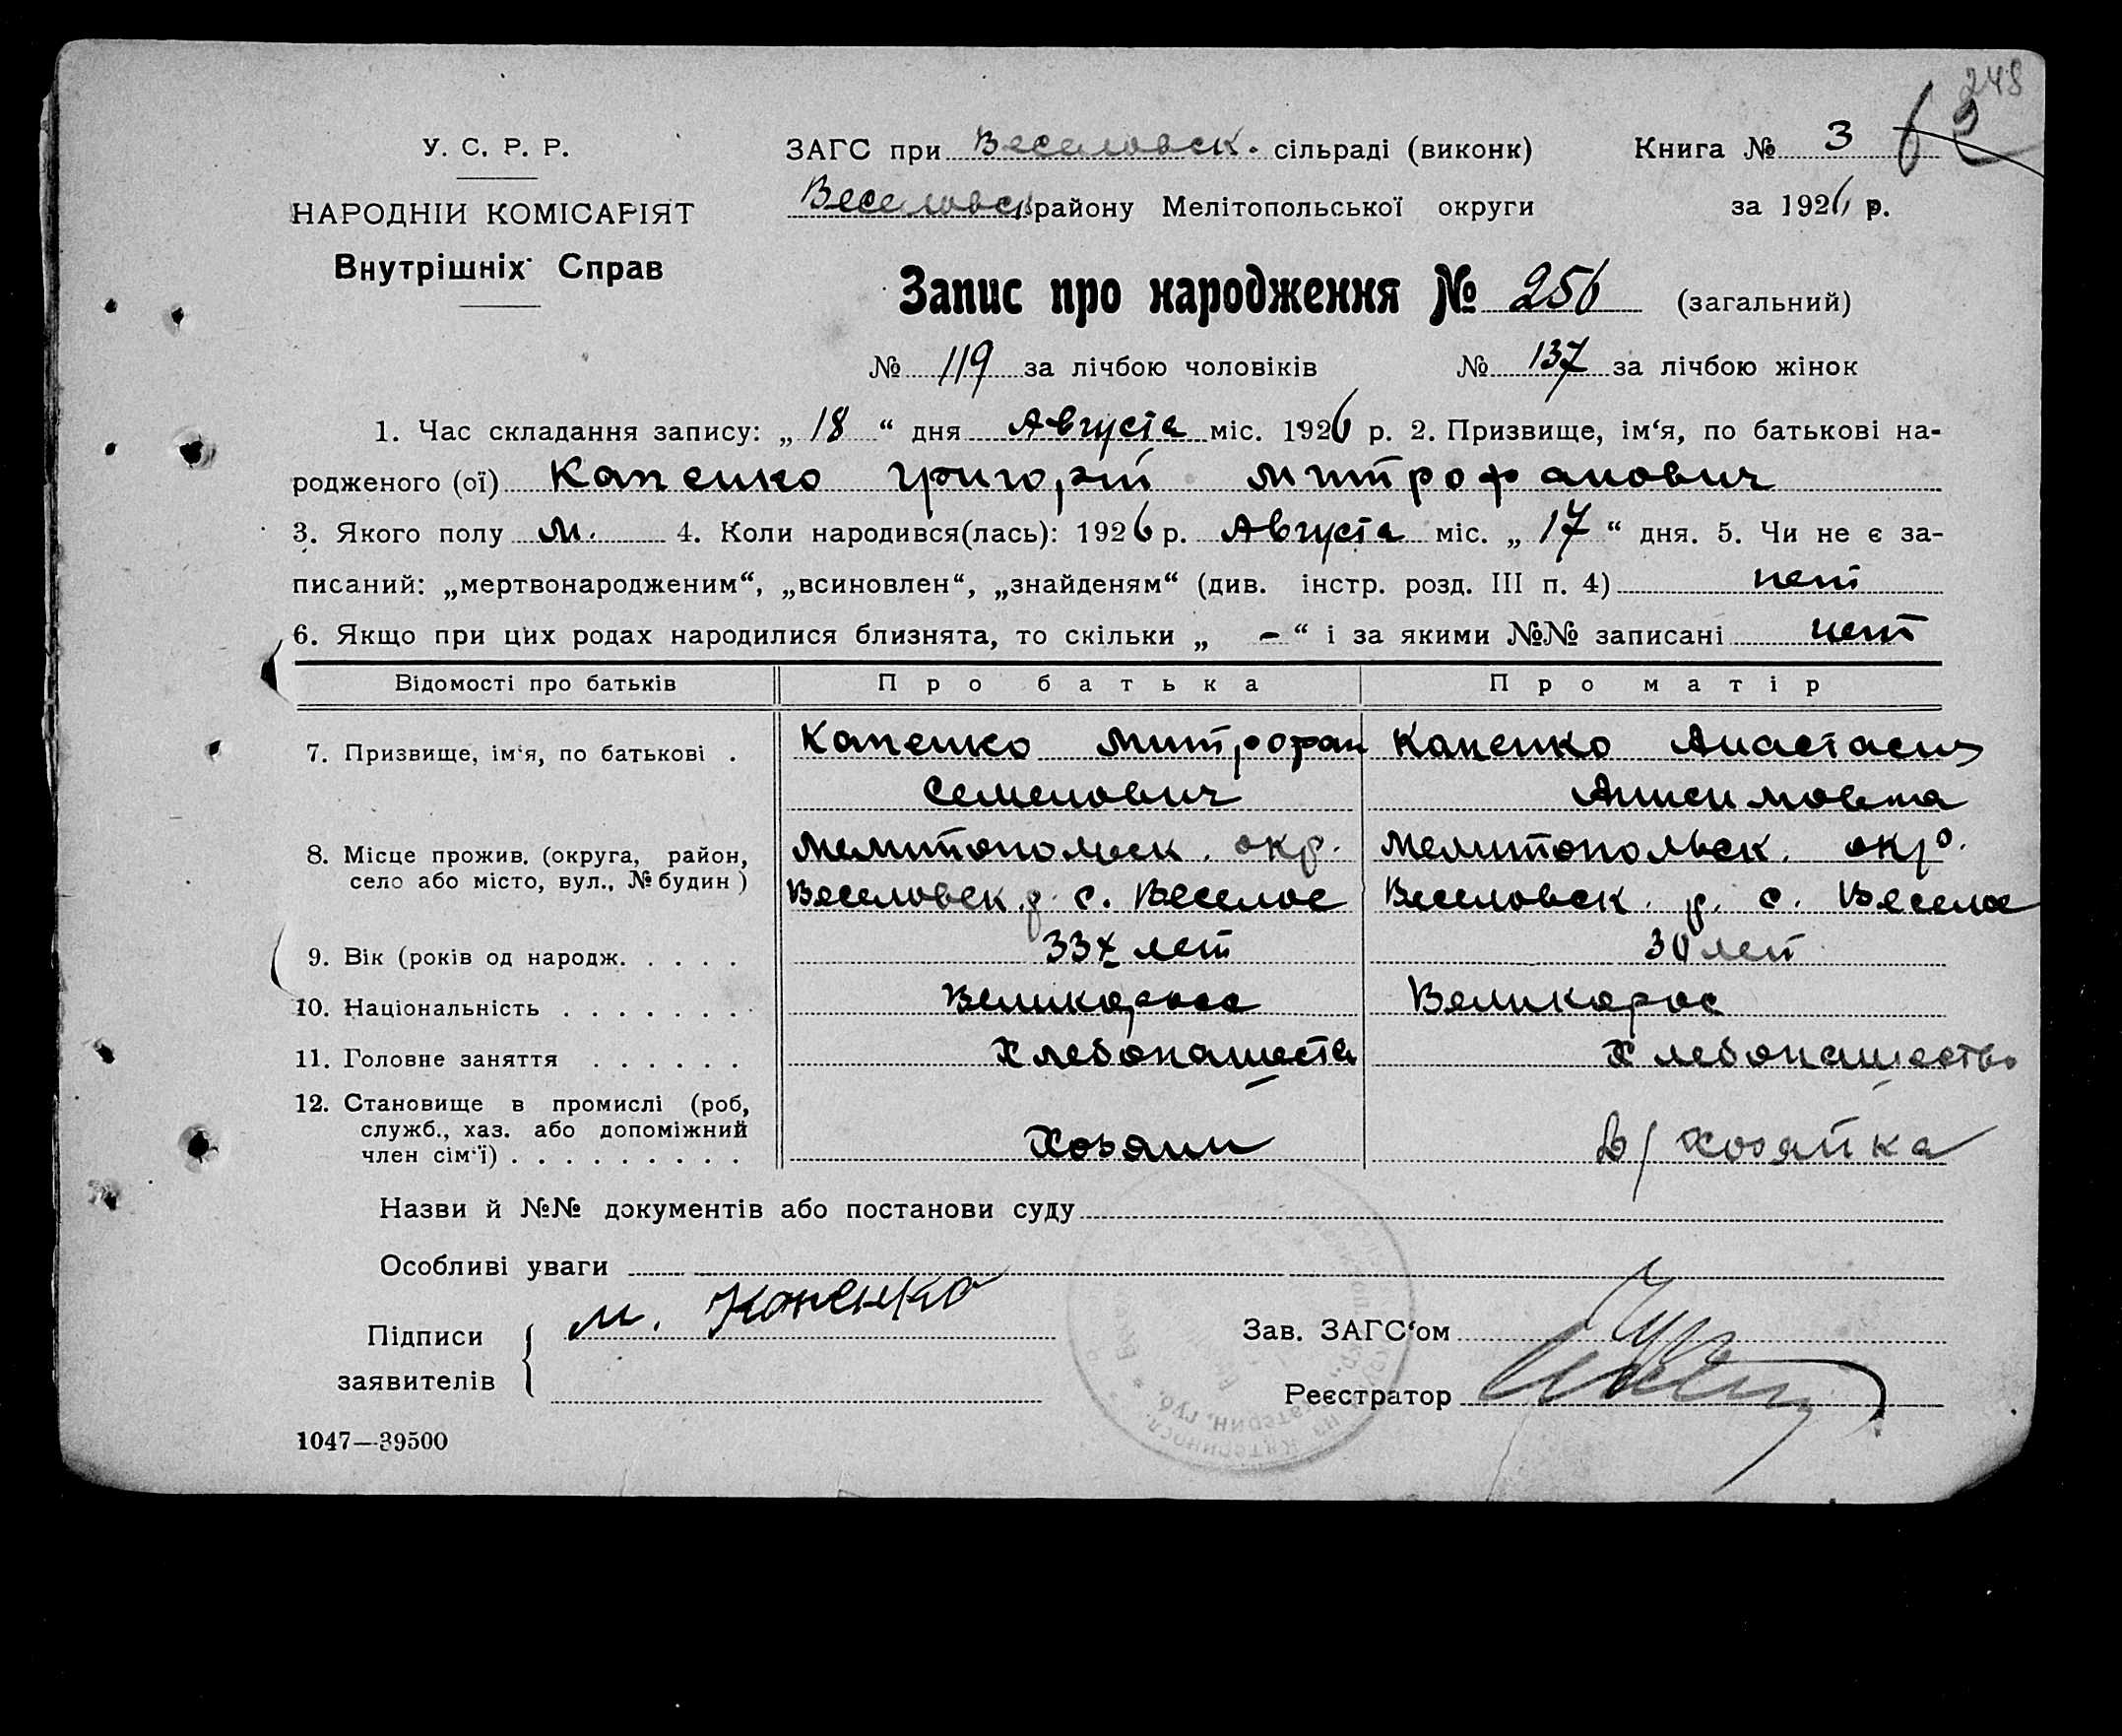 248
У. С. Р. Р.
ЗАГС при Веселовск. сільраді (виконк)
Книга № 3
НАРОДНІЙ КОМІСАРІЯТ
Веселовск району Мелітопольської округи
за 1926 р.
Внутрішніх Справ
Запис про народження № 256 (загальний)
№ 119 за лічбою чоловіків № 137 за лічбою жінок
1. Час складання запису: „ 18 “ дня Августа міс. 1926 р. 2. Призвище, ім‘я, по батькові на-
родженого (ої) Капенко Григорий Митрофанович
3. Якого полу м. 4. Коли народився(лась): 1926 р. Августа міс. „ 17 “ дня. 5. Чи не є за-
писаний: „мертвонародженим“, „всиновлен“, „знайденям“ (див. інстр. розд. III п. 4) нет
6. Якщо при цих родах народилися близнята, то скільки „ - “ і за якими №№ записані нет
Відомості про батьків Про батька Про матір
7. Призвище, ім‘я, по батькові . Капенко Митрофан Капенко Анастасия
Семенович Анисимовна
8. Місце прожив. (округа, район, Мелитопольск. окр. Мелитопольск. окр.
село або місто, вул., № будин ) Веселовск. р. с. Веселое Веселовск. р. с. Веселое
9. Вік (років од народж. . . . . 33х лет 30 лет
10. Національність . . . . . . . . Великоросс Великорос
11. Головне заняття . . . . . . Хлебопашество Хлебопашество
12. Становище в промислі (роб,
служб., хаз. або допоміжний
член сім‘ї) . . . . . . . . . Хозяин Д/хозяйка
Назви й №№ документів або постанови суду
Особливі уваги
Підписи
заявителів
М. Капенко
Зав. ЗАГС‘ом
Реєстратор
1047—39500